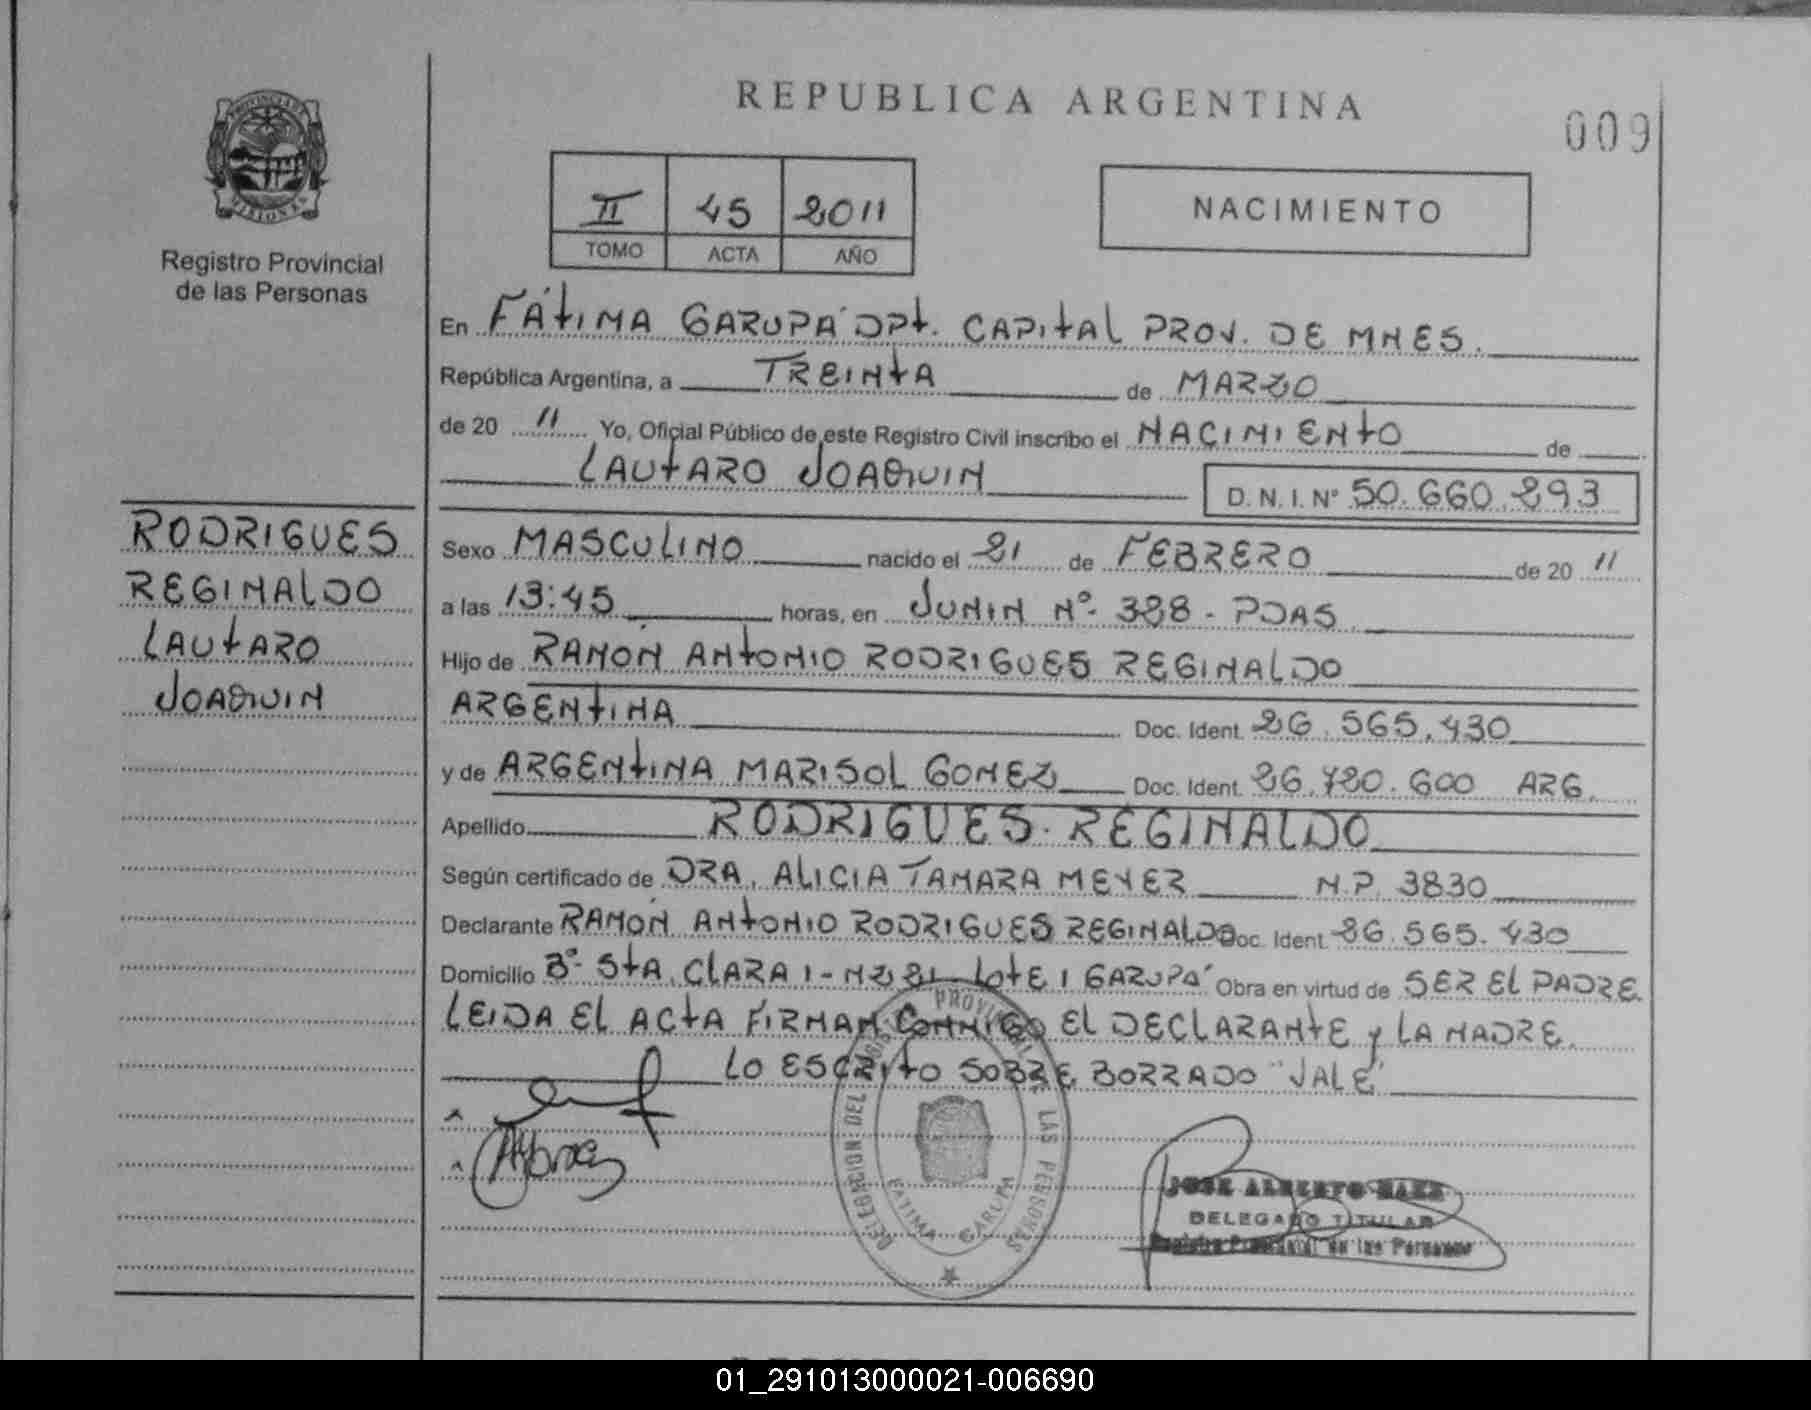 REPUBLICA ARGENTINA
009
PROVINCIA DE
MISIONES
Registro Provincial
de las Personas
II 45 2011
TOMO ACTA AÑO
NACIMIENTO
En FÁTIMA GARUPÁ DPT. CAPITAL PROV. DE MNES.
República Argentina, a TREINTA de MARZO
de 20 11 Yo, Oficial Público de este Registro Civil inscribo el NACIMIENTO de
LAUTARO JOAQUIN D.N.I. Nº 50.660.293
RODRIGUES
REGINALDO
LAUTARO
JOAQUIN
Sexo MASCULINO nacido el 21 de FEBRERO de 20 11
a las 13:45 horas, en JUNIN Nº 388 - PDAS
Hijo de RAMÓN ANTONIO RODRIGUES REGINALDO
ARGENTINA Doc. Ident. 26.565.430
y de ARGENTINA MARISOL GOMEZ Doc. Ident. 26.720.600 ARG.
Apellido RODRIGUES REGINALDO
Según certificado de DRA. ALICIA TAMARA MEYER M.P. 3830
Declarante RAMÓN ANTONIO RODRIGUES REGINALDO Doc. Ident. 26.565.430
Domicilio Bº STA. CLARA 1 - MZ 21 LOTE 1 GARUPÁ Obra en virtud de SER EL PADRE.
LEIDA EL ACTA FIRMAN CONMIGO EL DECLARANTE y LA MADRE.
LO ESCRITO SOBRE BORRADO "VALE"
DELEGACION DEL REGISTRO PROVINCIAL DE LAS PERSONAS
FATIMA GARUPA
JOSE ALBERTO BAEZ
DELEGADO TITULAR
Registro Provincial de las Personas
01_291013000021-006690